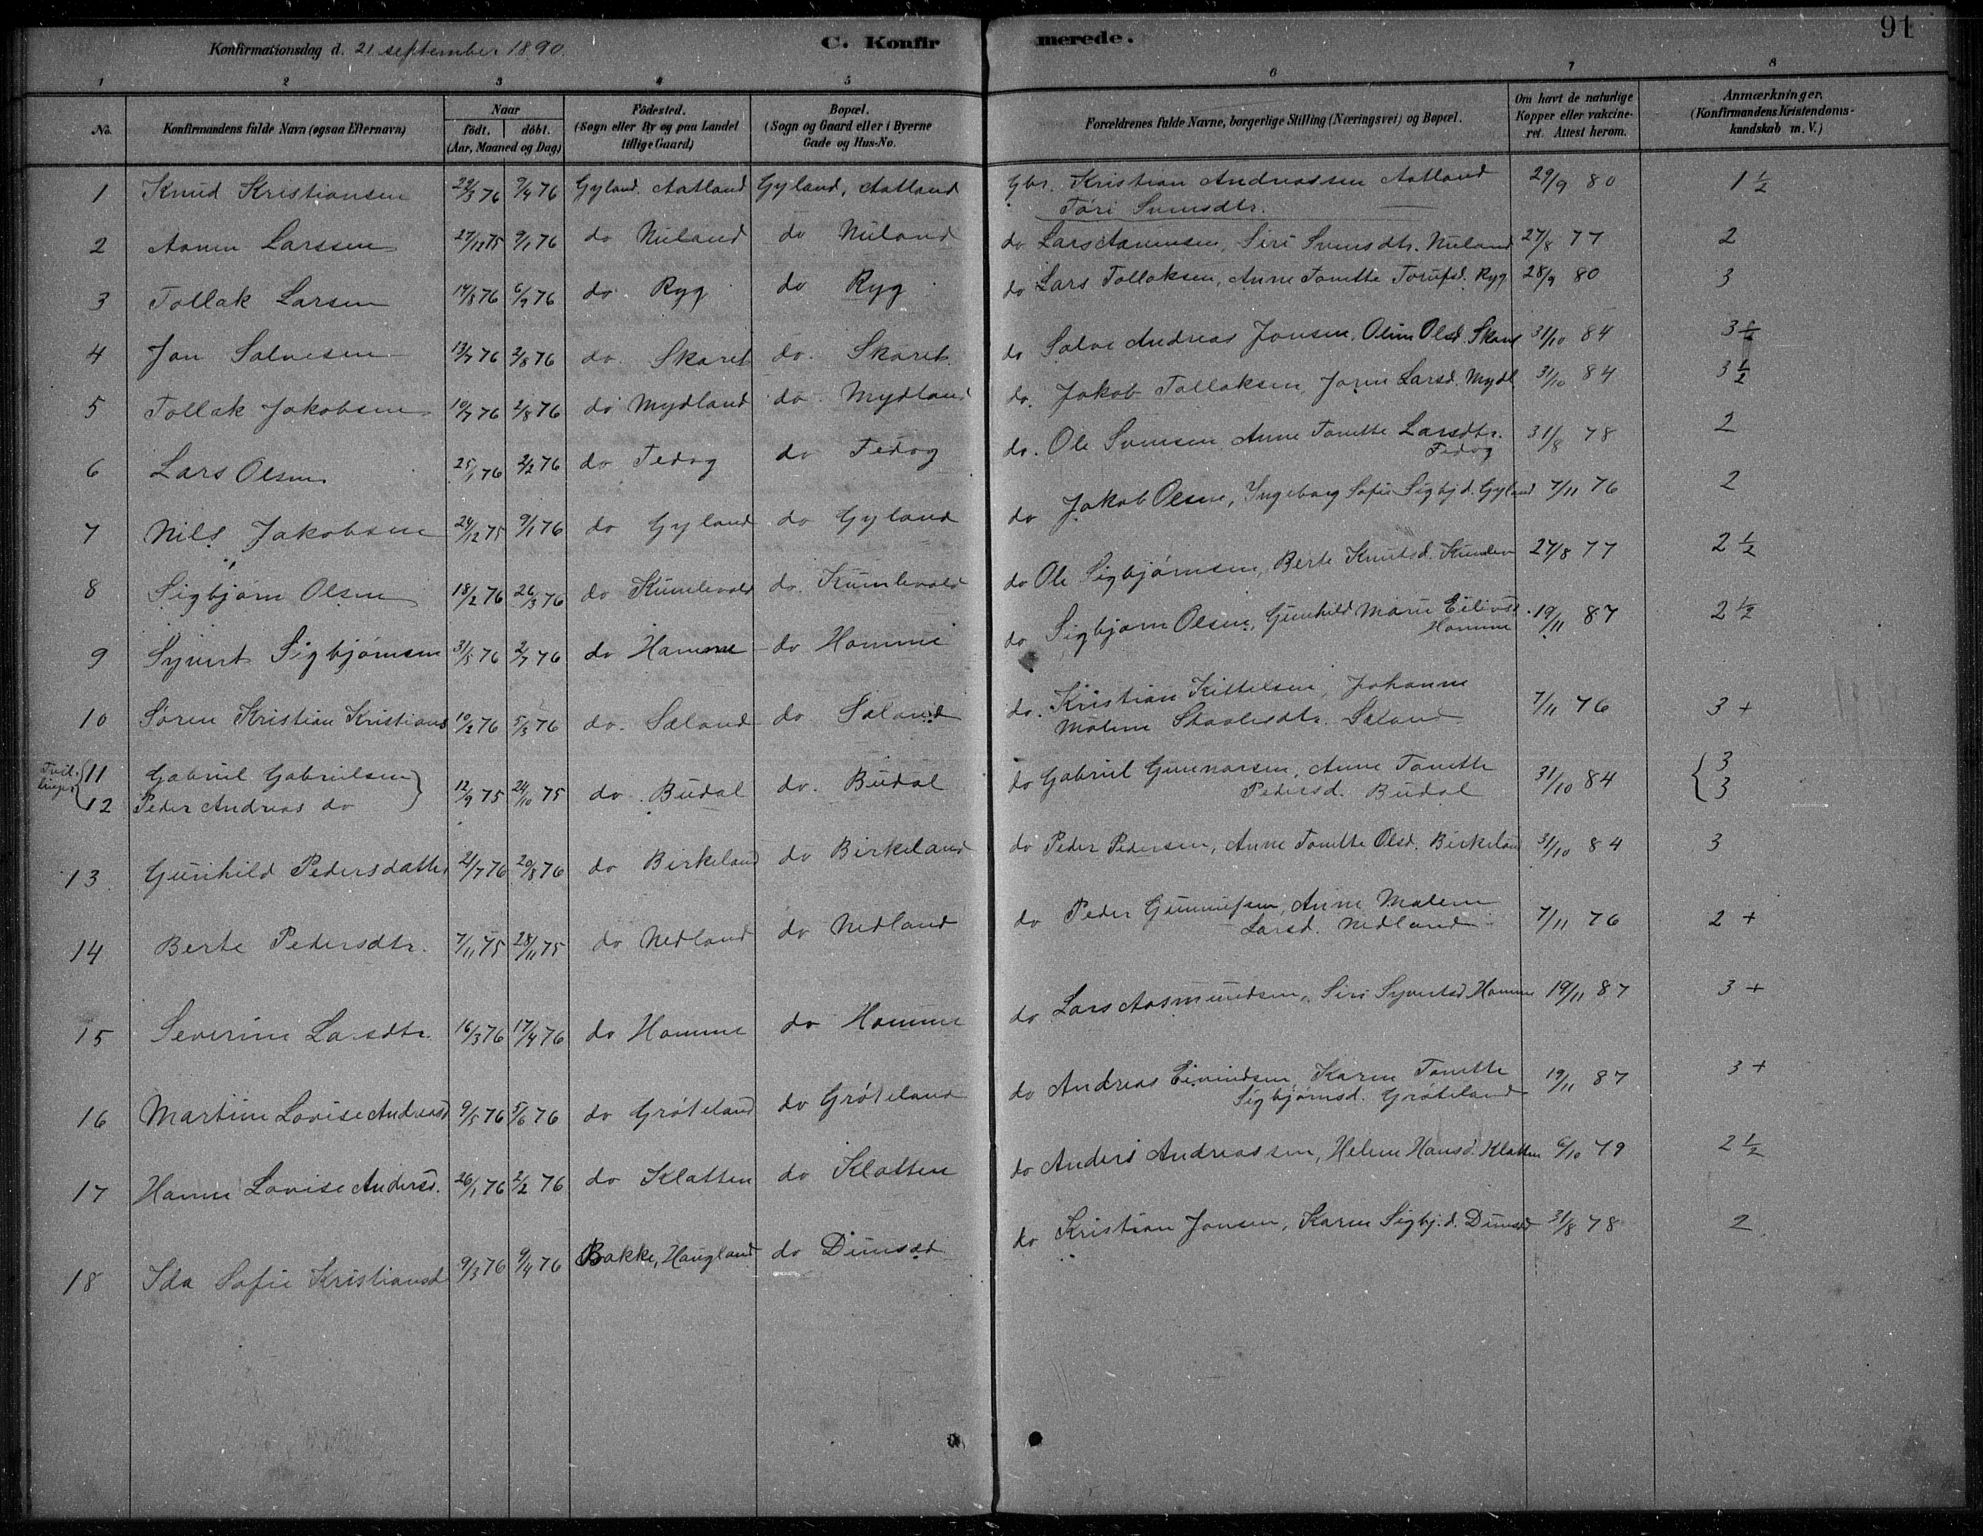 91
Konfirmationsdag d. 21 september 1890.
C. Konfirmerede.
1 2 3 4 5 6 7 8
No. Konfirmandens fulde Navn (ogsaa Efternavn) Naar födt. döbt. (Aar, Maaned og Dag) Födested. (Sogn eller By og paa Landet tillige Gaard) Bopæl. (Sogn og Gaard eller i Byerne Gade og Hus-No. Forældrenes fulde Navne, borgerlige Stilling (Næringsvei) og Bopæl. Om havt de naturlige Kopper eller vakcineret. Attest herom. Anmærkninger. (Konfirmandens Kristendomskundskab m. V.)
1 Knud Kristiansen 29/3 76 9/4 76 Gyland. Aatland Gyland, Aatland Gbr. Kristian Andreassen Aatland 29/9 80 1 1/2
Tori Svensdtr.
2 Aanen Larssen 27/12 75 9/1 76 do Nuland do Nuland do Lars Aanensen, Siri Svensdtr. Nuland 27/8 77 2
3 Tollak Larsen 14/5 76 6/7 76 do Ryg do Ryg do Lars Tollaksen, Anne Tonette Torufsd. Ryg 28/9 80 3
4 Jon Salvesen 13/7 76 2/8 76 do. Skaret do. Skaret do Salve Andreas Jonsen, Oline Olsd. 31/10 84 3 1/2
5 Tollak Jakobsen 10/7 76 2/8 76 do Mydland do. Mydland do. Jakob Tollaksen, Joren Larsd. Mydl 31/10 84 3 1/2
6 Lars Olsen 25/1 76 2/2 76 do Fedog do Fedog do. Ole Svensen Anne Tonette Larsdtr. 31/8 78 2
Fedog
7 Nils Jakobsen 24/12 75 9/1 76 do Gyland do Gyland do Jakob Olsen, Ingeborg Sofie Sigbj.d. Gyland 7/11 76 2
8 Sigbjørn Olsen 18/2 76 26/3 76 do Kumlevold do. Kumlevold do Ole Sigbjørnsen, Berte Knutsd. Kumlev 27/8 77 2 1/2
9 Syvert Sigbjørnsen 31/5 76 2/7 76 do Homme do Homme do Sigbjørn Olsen, Gunhild Marie Eilivsd. 19/11 87 2 1/2
Homme
10 Søren Kristian Kristians 10/2 76 5/3 76 do. Sæland do Sæland do. Kristian Kittelsen, Johanne 7/11 76 3 +
Malene Staalesdtr. Sæland
Tvillinger { 11 Gabriel Gabrielsen 12/9 75 24/10 75 do. Budal do. Budal do Gabriel Gunnarsen, Anne Tonette 31/10 84 3
12 Peder Andreas do Pedersd. Budal 3
13 Gunhild Pedersdatter 21/7 76 20/8 76 do Birkeland do Birkeland do Peder Pedersen, Anne Tonette Olsd. Birkeland 31/10 84 3
14 Berte Pedersdtr. 7/11 75 28/11 75 do Nedland do Nedland do Peder Gunnufsen, Anne Malene 7/11 76 2 +
Larsd. Nedland
15 Severine Larsdtr. 16/3 76 17/4 76 do Homme do Homme do Lars Aasmundsen, Siri Syvertsd Homme 19/11 87 3 +
16 Martine Lovise Andreasd 9/5 76 5/6 76 do Grøteland do Grøteland do Andreas Eivindsen, Karen Tonette 19/11 87 3 +
Sigbjørnsd. Grøteland
17 Hanne Lovise Andersd. 26/1 76 2/2 76 do Klatten do Klatten do Anders Andreassen, Helene Hansd. Klatten 6/10 79 2 1/2
18 Ida Sofie Kristiansd 9/3 76 9/4 76 Bakke, Haugland do Dunsæd do Kristian Jonsen, Karen Sigbj.d. Dunsæd 31/8 78 2